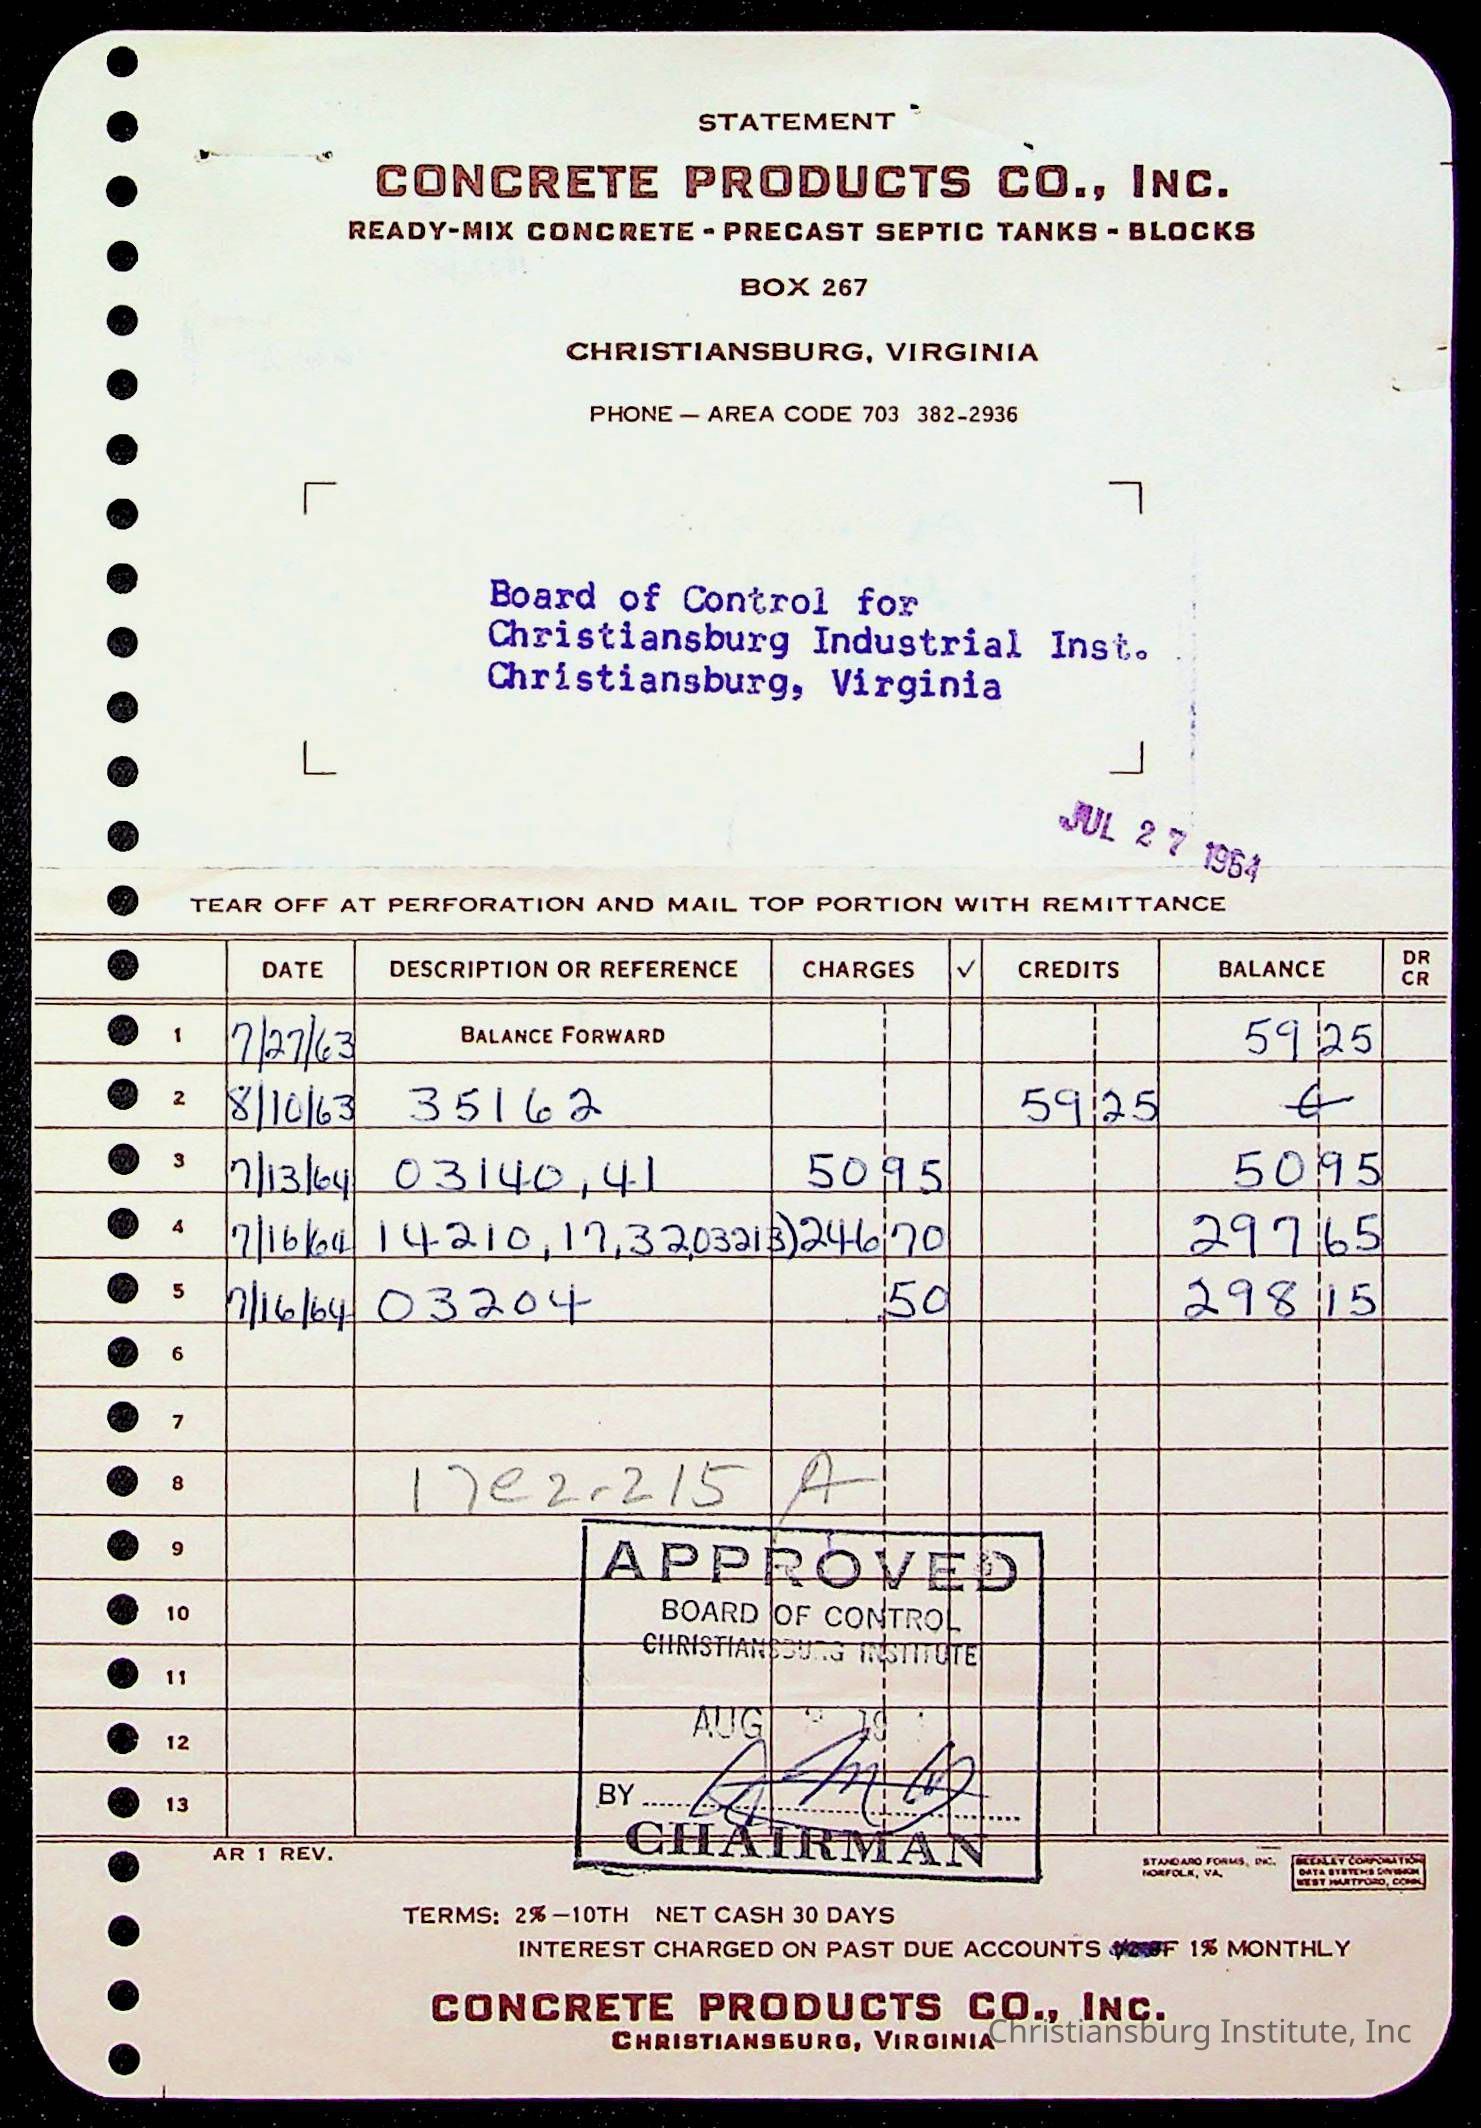 STATEMENT
CONCRETE PRODUCTS CO., INC.
READY-MIX CONCRETE - PRECAST SEPTIC TANKS - BLOCKS
BOX 267
CHRISTIANSBURG, VIRGINIA
PHONE — AREA CODE 703 382-2936
Board of Control for
Christiansburg Industrial Inst.
Christiansburg, Virginia
JUL 27 1964
TEAR OFF AT PERFORATION AND MAIL TOP PORTION WITH REMITTANCE
DATE DESCRIPTION OR REFERENCE CHARGES ✓ CREDITS BALANCE DR CR
1 7/27/63 BALANCE FORWARD 59 25
2 8/10/63 35162 59 25
3 7/13/64 03140,41 50 95 50 95
4 7/16/64 14210,17,32,03213) 246 70 297 65
5 7/16/64 03204 .50 298 15
6
7
8 17e2-215 A
9
APPROVED
10 BOARD OF CONTROL
CHRISTIANSBURG INSTITUTE
11
AUG
12
BY
13
CHAIRMAN
AR 1 REV.
STANDARD FORMS, INC.
NORFOLK, VA.
DATA SYSTEMS DIVISION
WEST HARTFORD, CONN.
TERMS: 2% — 10TH NET CASH 30 DAYS
INTEREST CHARGED ON PAST DUE ACCOUNTS 1% MONTHLY
CONCRETE PRODUCTS CO., INC.
CHRISTIANSBURG, VIRGINIA
Christiansburg Institute, Inc